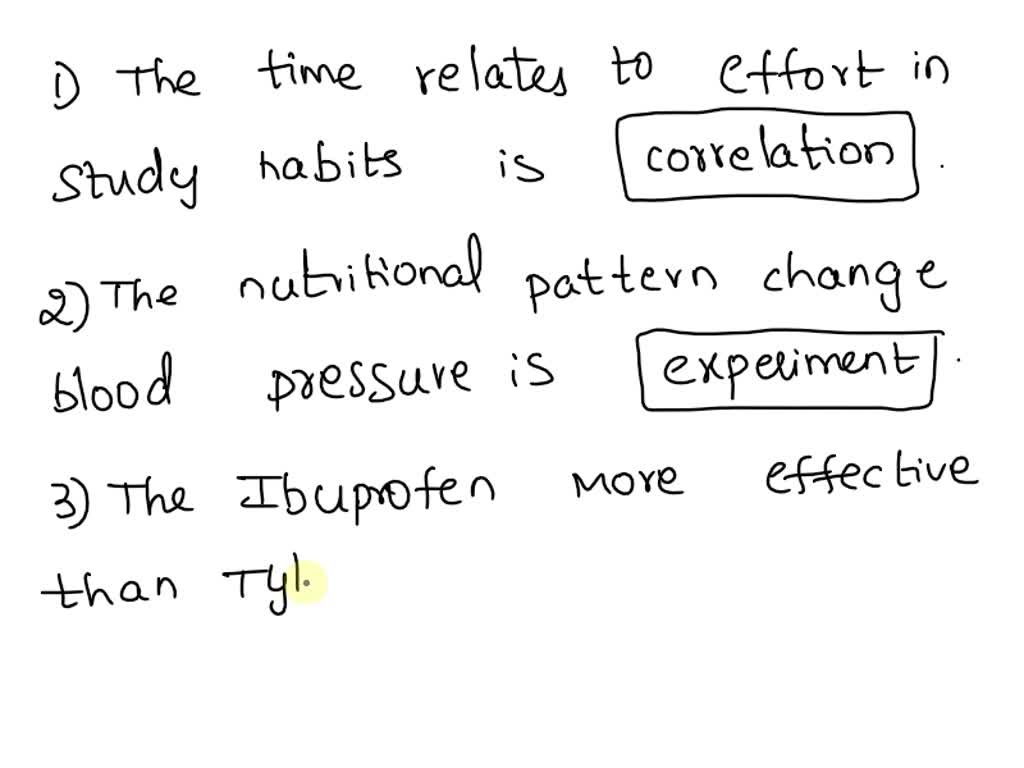 1) The time relates to effort in
study habits is correlation.
2) The nutritional pattern change
blood pressure is experiment.
3) The Ibuprofen more effective
than Tyl